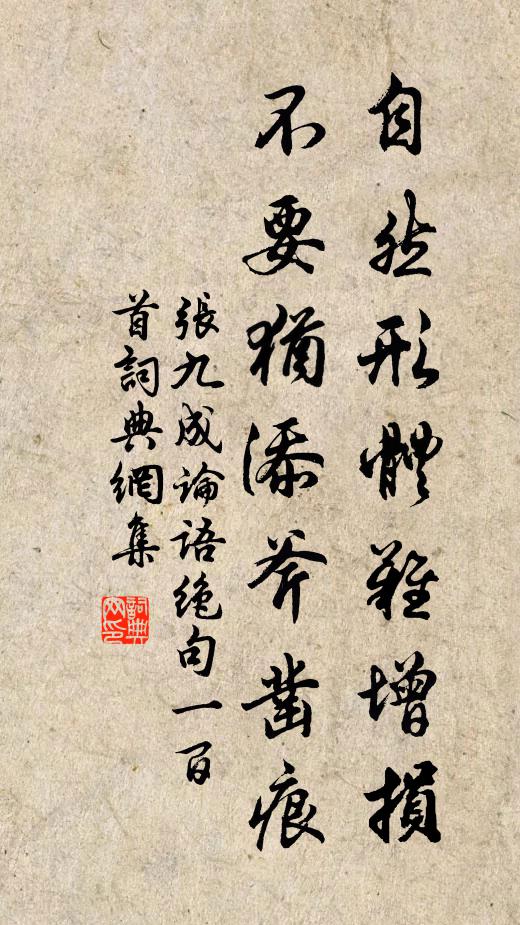 自然形體難增損
不要猶添斧鑿痕
張九成論語絕句一百
首詞典網集
詞典網印